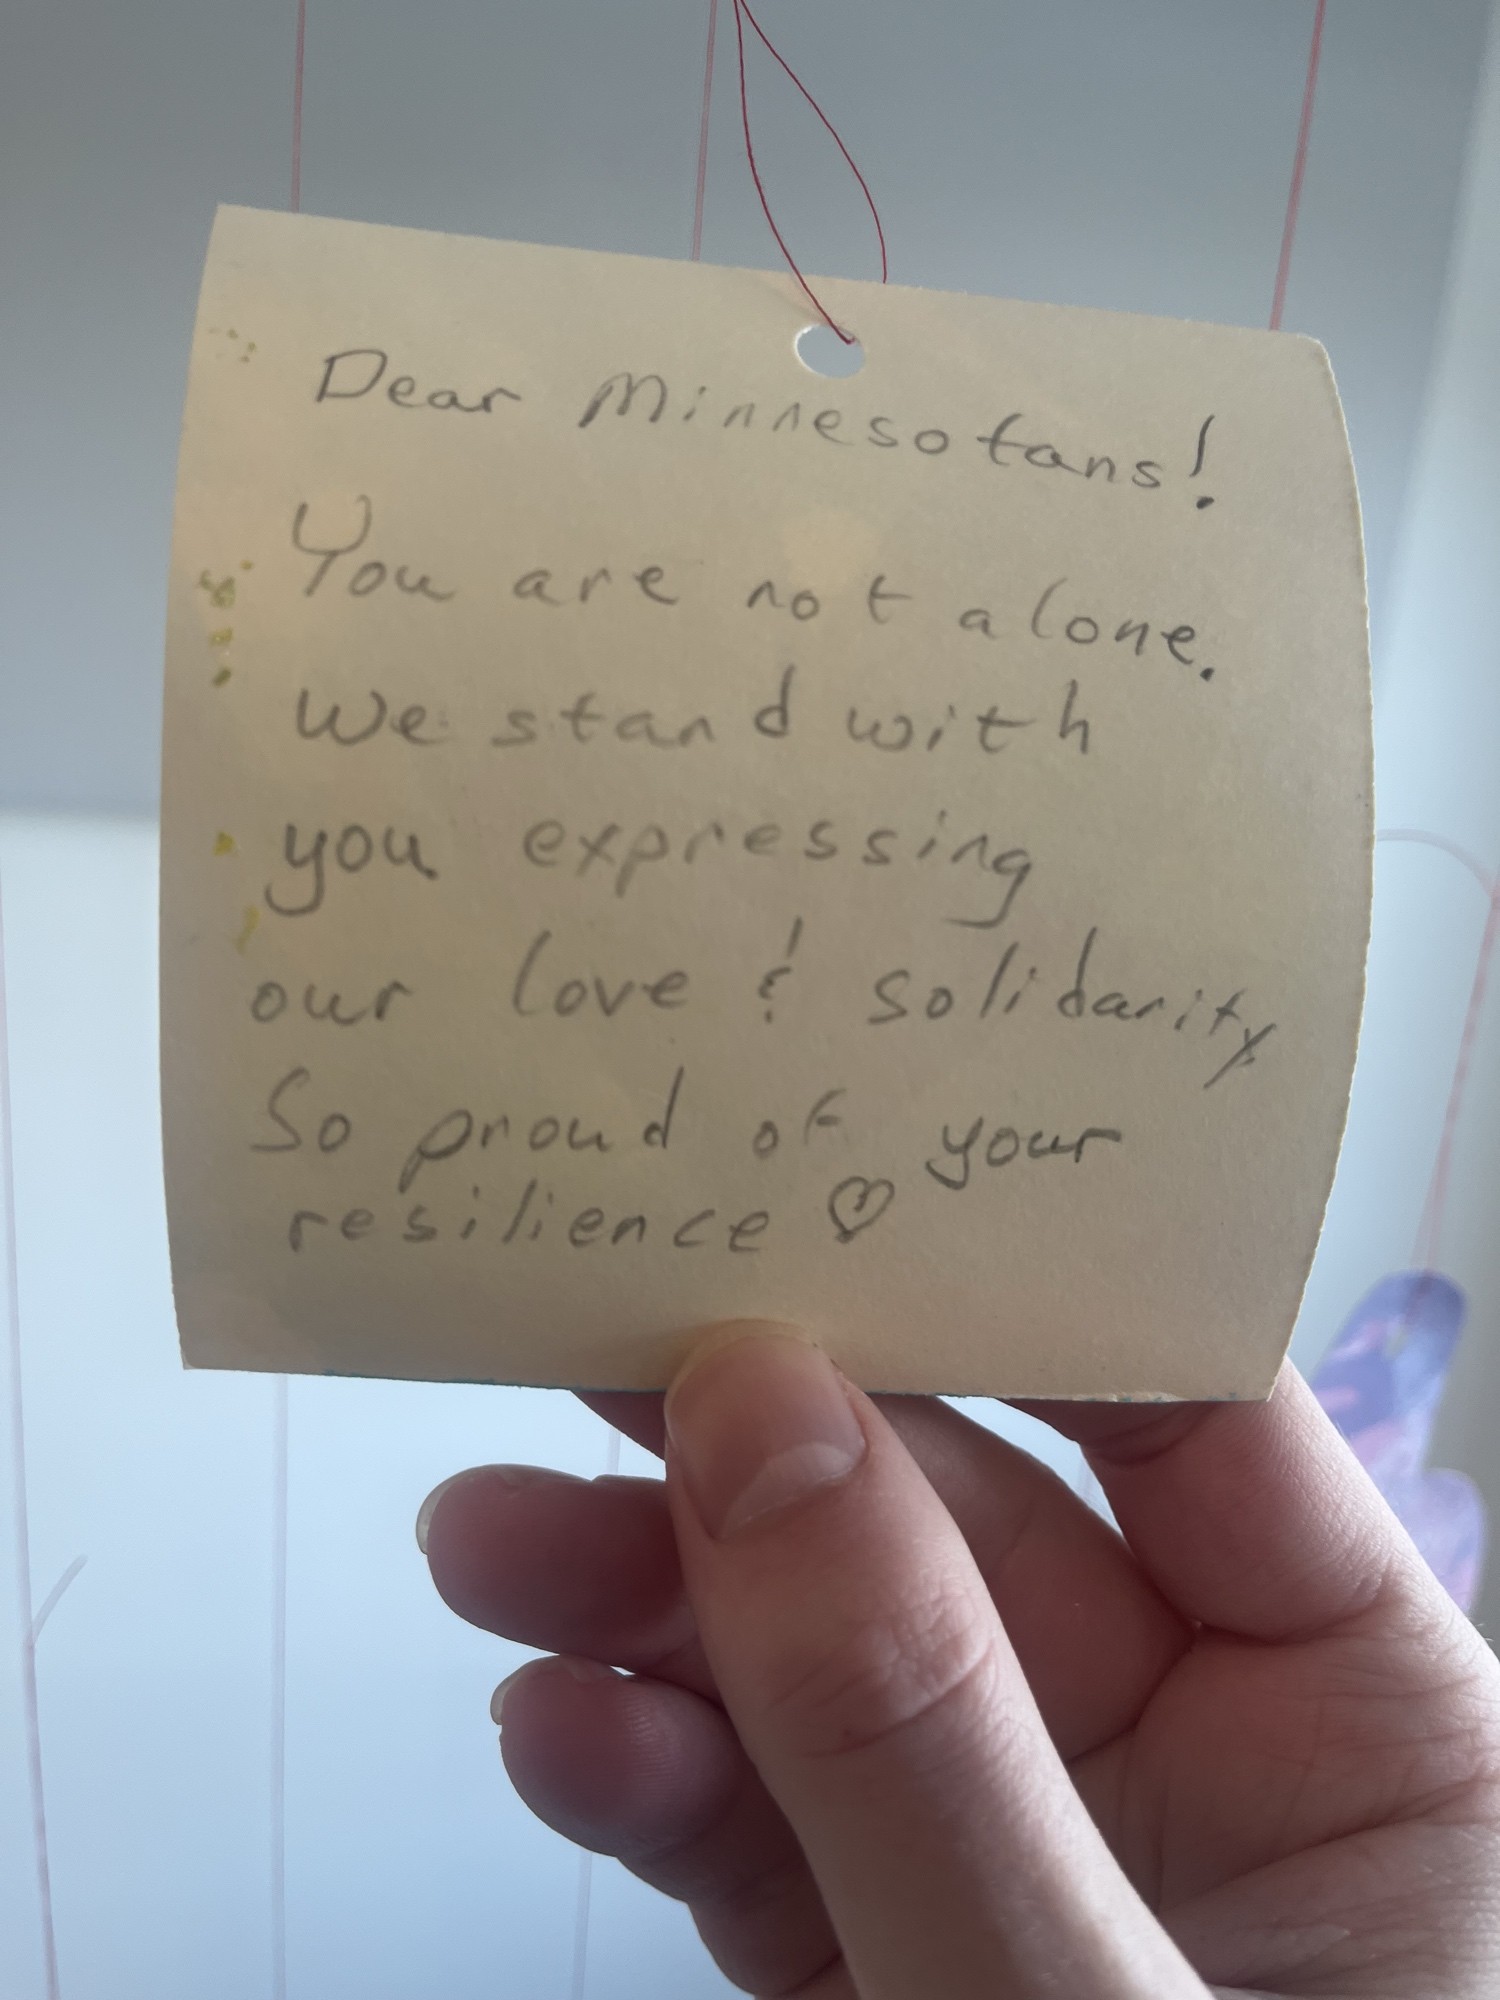 Dear Minnesotans!
You are not alone.
We stand with
you expressing
our love & solidarity
So proud of your
resilience ♡